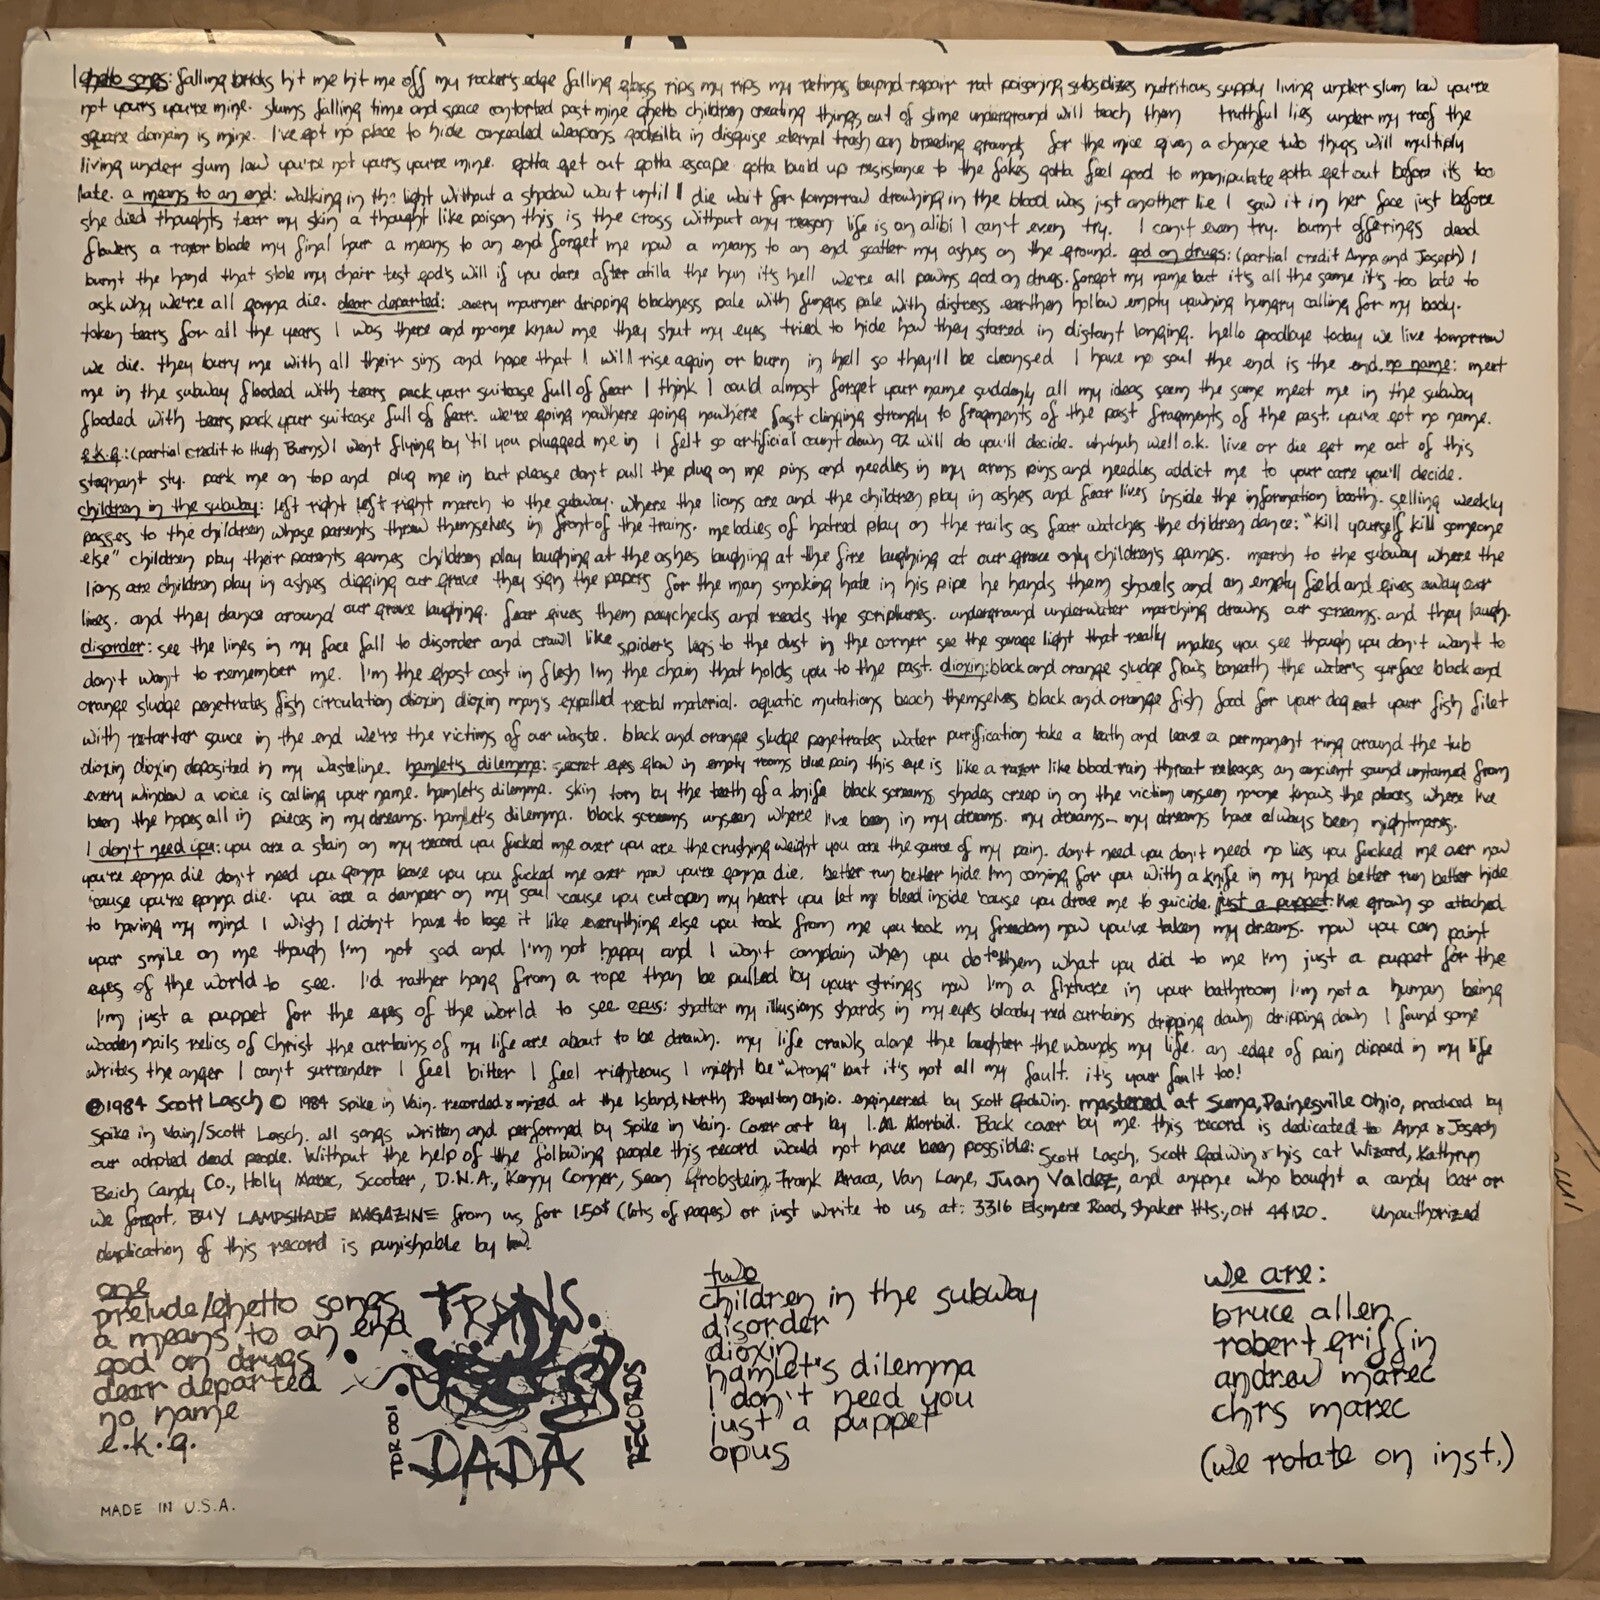 ghetto songs: falling bricks hit me hit me off my rocker's edge falling glass rips my rips my retinas beyond repair rat poisoning subsidizes nutritious supply living under slum law you're
not yours you're mine. slums falling time and space contorted past mine ghetto children creating things out of slime underground will teach them truthful lies under my roof the
square domain is mine. I've got no place to hide concealed weapons godzilla in disguise eternal trash can breeding grounds for the mice given a chance two thugs will multiply
living under slum law you're not yours you're mine. gotta get out gotta escape gotta build up resistance to the fakes gotta feel good to manipulate gotta get out before it's too
late. a means to an end: walking in the light without a shadow wait until I die wait for tomorrow drowning in the blood was just another lie I saw it in her face just before
she died thoughts tear my skin a thought like poison this is the cross without any reason life is an alibi I can't even try. I can't even try. burnt offerings dead
flowers a razor blade my final hour a means to an end forget me now a means to an end scatter my ashes on the ground. god on drugs: (partial credit Anna and Joseph) I
burnt the hand that stole my chair test god's will if you dare after atilla the hun it's hell we're all pawns god on drugs. forget my name but it's all the same it's too late to
ask why we're all gonna die. dear departed: every mourner dripping blackness pale with fungus pale with distress earthen hollow empty yawning hungry calling for my body.
taken tears for all the years I was there and no-one knew me they shut my eyes tried to hide how they stared in distant longing. hello goodbye today we live tomorrow
we die. they bury me with all their sins and hope that I will rise again or burn in hell so they'll be cleansed I have no soul the end is the end. no name: meet
me in the subway flooded with tears pack your suitcase full of fear I think I could almost forget your name suddenly all my ideas seem the same meet me in the subway
flooded with tears pack your suitcase full of fear. we're going nowhere going nowhere fast clinging strongly to fragments of the past fragments of the past. you've got no name.
e.k.g.: (partial credit to Hugh Burns) I went flying by 'til you plugged me in I felt so artificial count down 92 will do you'll decide. uhuhuh well o.k. live or die get me out of this
stagnant sty. park me on top and plug me in but please don't pull the plug on me pins and needles in my arms pins and needles addict me to your care you'll decide.
children in the subway: left right left right march to the subway. where the lions are and the children play in ashes and fear lives inside the information booth. selling weekly
passes to the children whose parents threw themselves in front of the trains. melodies of hatred play on the rails as fear watches the children dance: "kill yourself kill someone
else" children play their parents games children play laughing at the ashes laughing at the fire laughing at our grave only children's games. march to the subway where the
lions are children play in ashes digging our grave they sign the papers for the man smoking hate in his pipe he hands them shovels and an empty field and gives away our
lives. and they dance around our grave laughing. fear gives them paychecks and reads the scriptures. underground underwater marching drowns our screams. and they laugh.
disorder: see the lines in my face fall to disorder and crawl like spider's legs to the dust in the corner see the savage light that really makes you see though you don't want to
don't want to remember me. I'm the ghost cast in flesh I'm the chain that holds you to the past. dioxin: black and orange sludge flows beneath the water's surface black and
orange sludge penetrates fish circulation dioxin dioxin man's expelled rectal material. aquatic mutations beach themselves black and orange fish food for your dog eat your fish filet
with retartar sauce in the end we're the victims of our waste. black and orange sludge penetrates water purification take a bath and leave a permanent ring around the tub
dioxin dioxin deposited in my wasteline. hamlet's dilemma: secret eyes glow in empty rooms blue pain this eye is like a razor like blood rain throat releases an ancient sound untamed from
every window a voice is calling your name. hamlet's dilemma. skin torn by the teeth of a knife black screams, shades creep in on the victim unseen no-one knows the places where I've
been the hopes all in pieces in my dreams. hamlet's dilemma. black screams unseen where I've been in my dreams. my dreams— my dreams have always been nightmares.
I don't need you: you are a stain on my record you fucked me over you are the crushing weight you are the source of my pain. don't need you don't need no lies you fucked me over now
you're gonna die don't need you gonna leave you you fucked me over now you're gonna die. better run better hide I'm coming for you with a knife in my hand better run better hide
'cause you're gonna die. you are a damper on my soul 'cause you cut open my heart you let me bleed inside 'cause you drove me to suicide. just a puppet: I've grown so attached
to having my mind I wish I didn't have to lose it like everything else you took from me you took my freedom now you've taken my dreams. now you can paint
your smile on me though I'm not sad and I'm not happy and I won't complain when you do to them what you did to me I'm just a puppet for the
eyes of the world to see. I'd rather hang from a rope than be pulled by your strings now I'm a fixture in your bathroom I'm not a human being
I'm just a puppet for the eyes of the world to see opus: shatter my illusions shards in my eyes bloody red curtains dripping down, dripping down I found some
wooden nails relics of Christ the curtains of my life are about to be drawn. my life crawls alone the laughter the wounds my life. an edge of pain dipped in my life
writes the anger I can't surrender I feel bitter I feel righteous I might be "wrong" but it's not all my fault. it's your fault too!
℗1984 Scott Lasch © 1984 Spike in Vain. recorded & mixed at the Island, North Royalton Ohio. engineered by Scott Godwin. mastered at Suma, Painesville Ohio, produced by
Spike in Vain/Scott Lasch. all songs written and performed by Spike in Vain. Cover art by I.M. Morbid. Back cover by me. this record is dedicated to Anna & Joseph
our adopted dead people. Without the help of the following people this record would not have been possible: Scott Lasch, Scott Godwin & his cat Wizard, Kathryn
Beich Candy Co., Holly Marec, Scooter, D.N.A., Kenny Conner, Sean Grobstein, Frank Araca, Van Lane, Juan Valdez, and anyone who bought a candy bar or
we forgot. BUY LAMPSHADE MAGAZINE from us for 1.50$ (lots of pages) or just write to us at: 3316 Elsmere Road, Shaker Hts., OH 44120. Unauthorized
duplication of this record is punishable by law.
one
prelude/ghetto songs
a means to an end
god on drugs
dear departed
no name
e.k.g.
MADE IN U.S.A.
TRANS.
DADA
RECORDS
TDR 001
two
children in the subway
disorder
dioxin
hamlet's dilemma
I don't need you
just a puppet
opus
we are:
bruce allen
robert griffin
andrew marec
chrs marec
(we rotate on inst.)